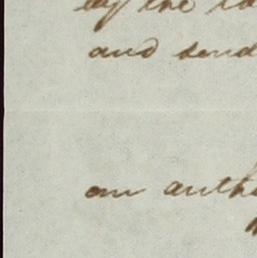 by the
and send
an auth